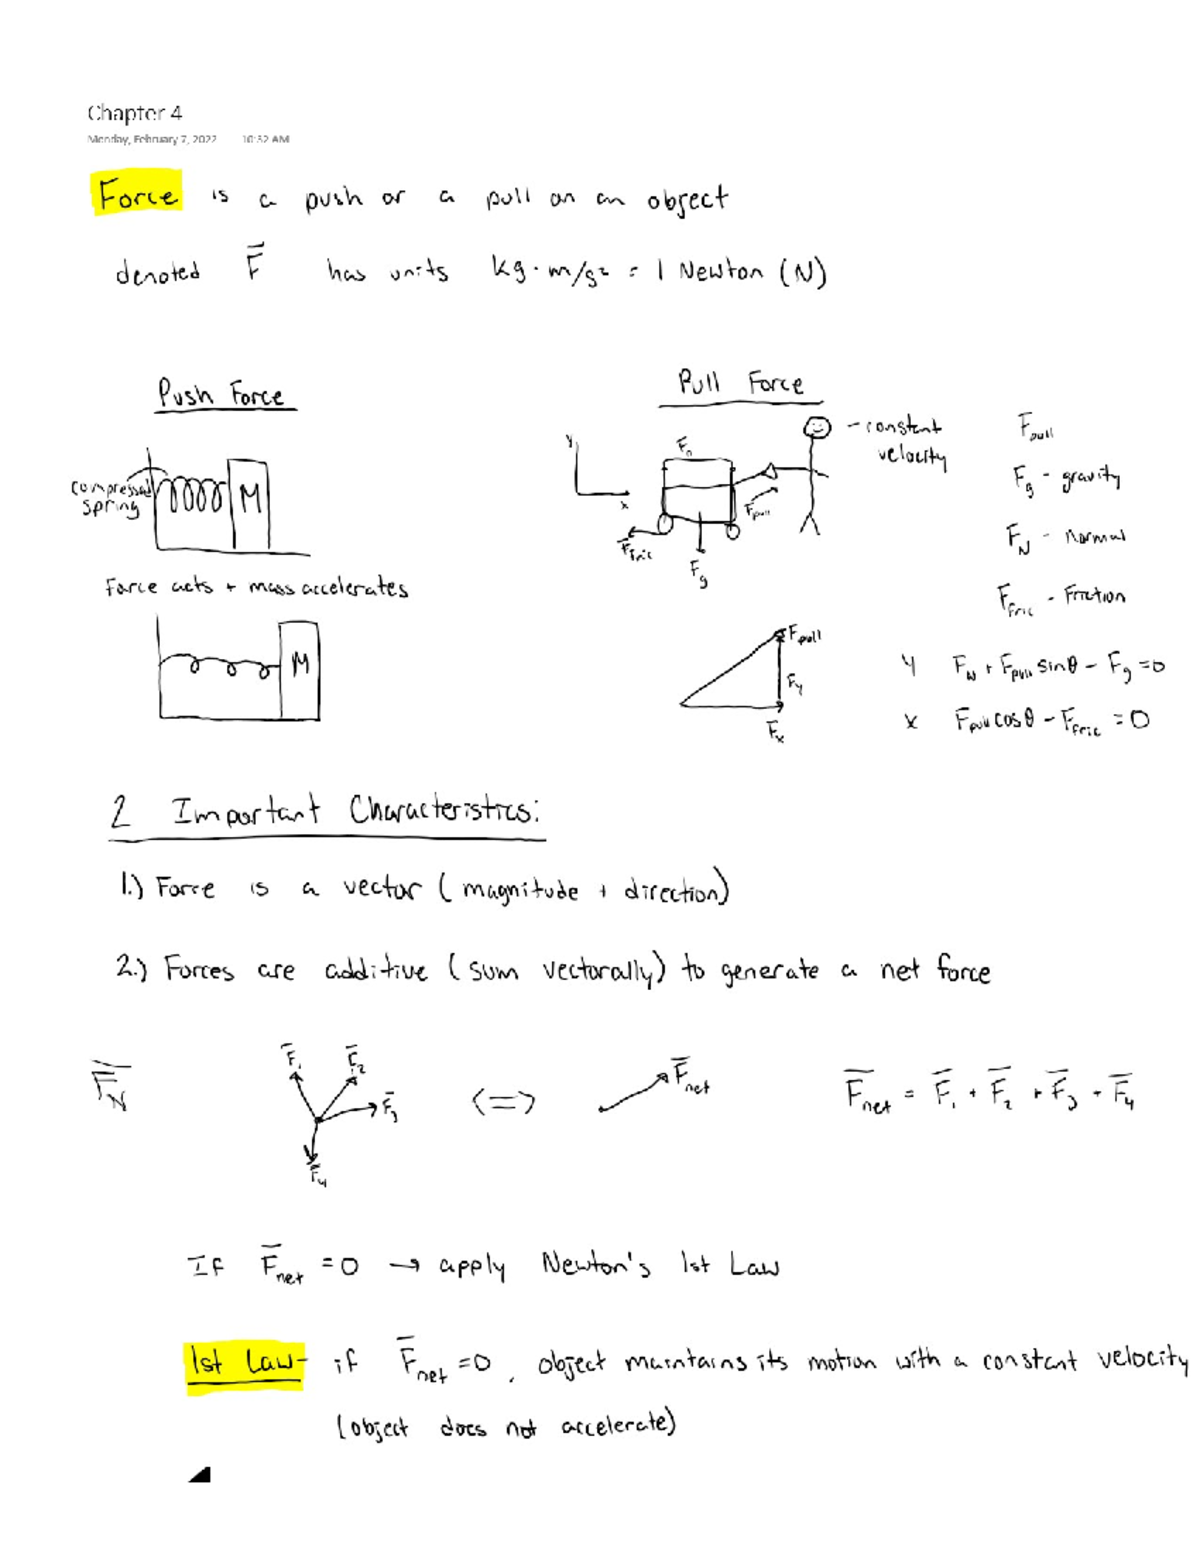 Chapter 4
Monday, February 7, 2022 10:32 AM
Force is a push or a pull on an object
denoted F̄ has units kg·m/s² = 1 Newton (N)
Push Force
compressed
spring
M
Force acts + mass accelerates
M
Pull Force
y
x
Fn
Fpull
Ffric
Fg
- constant
velocity
Fpull
Fg - gravity
FN - Normal
Ffric - Friction
Fpull
Fy
Fx
y FN + Fpull sinθ - Fg = 0
x Fpull cosθ - Ffric = 0
2 Important Characteristics:
1.) Force is a vector (magnitude + direction)
2.) Forces are additive (sum vectorally) to generate a net force
F̄N
F̄1
F̄2
F̄3
F̄4
<=>
F̄net
F̄net = F̄1 + F̄2 + F̄3 + F̄4
If F̄net = 0 → apply Newton's 1st Law
1st Law- if F̄net = 0, object maintains its motion with a constant velocity
(object does not accelerate)